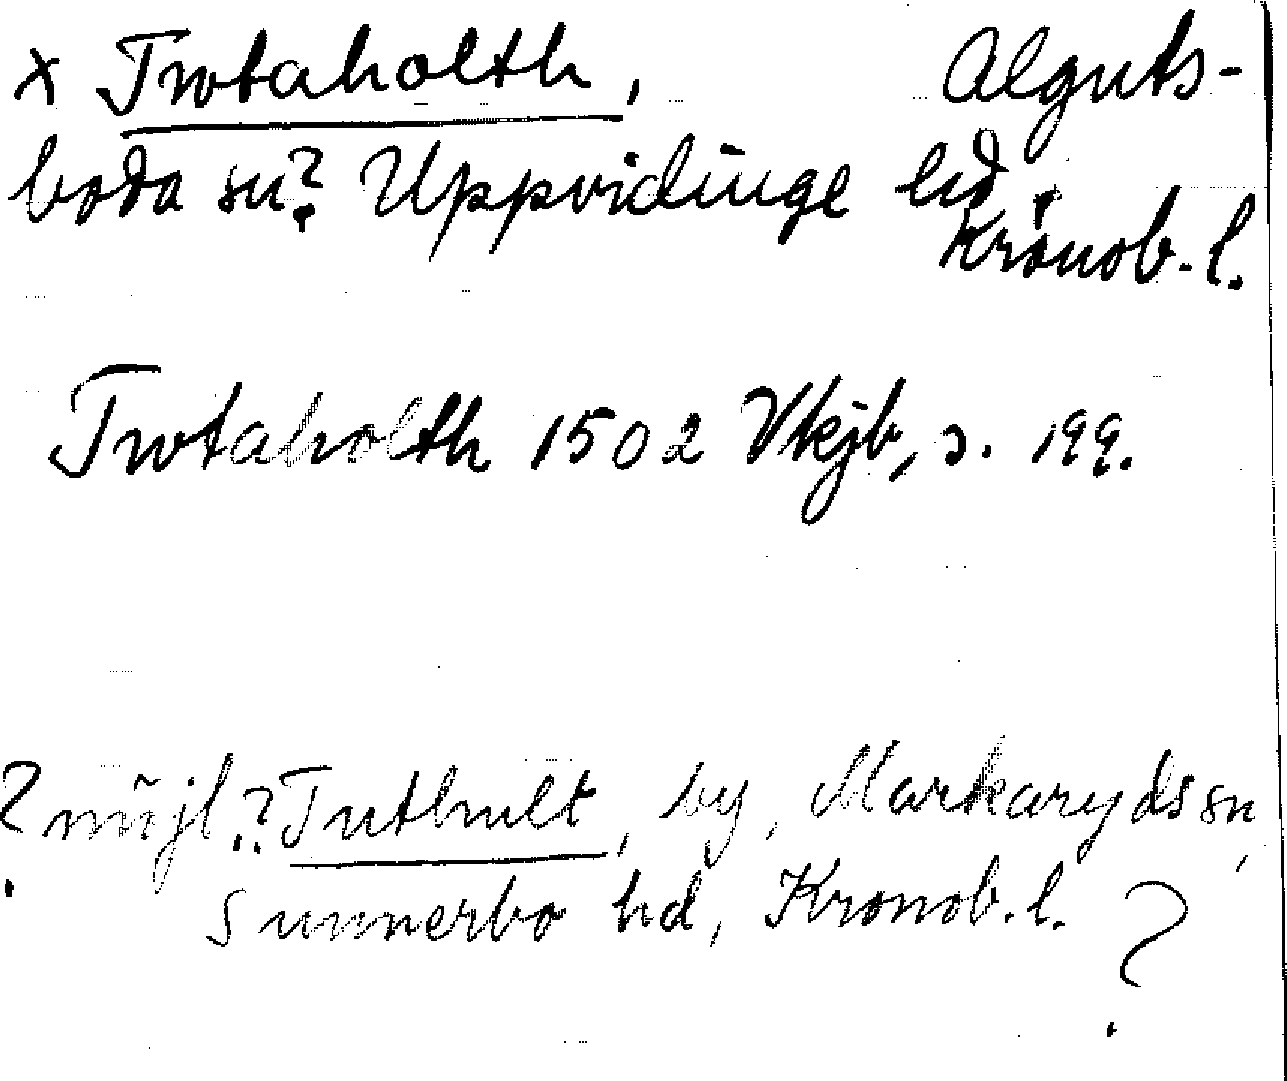 x Twtaholth, Alguts-
boda sn? Uppvidinge hd.
Kronob. l.
Twtaholth 1502 Vkjb, s. 199.
? möjl.? Tuthult, by, Markaryds sn,
Sunnerbo hd, Kronob. l. ?